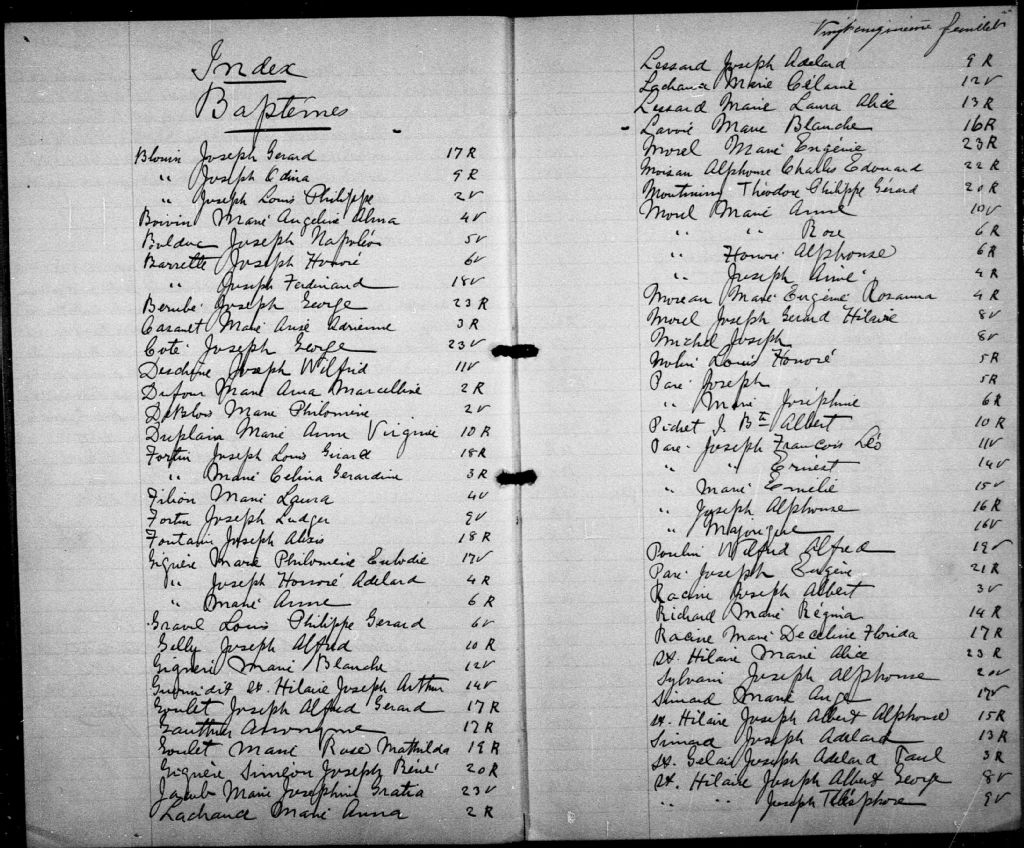 Index
Baptêmes
Blouin Joseph Gerard 17 R
" Joseph Odina 9 R
" Joseph Louis Philippe 2 V
Boivin Marie Angelina Alma 4 V
Bolduc Joseph Napoléon 5 V
Barrette Joseph Honoré 6 V
" Joseph Ferdinand 18 V
Berubé Joseph George 23 R
Casault Marie Ange Adrienne 3 R
Coté Joseph George 23 V
Deschêne Joseph Wilfrid 11 V
Dufour Marie Anna Marcelline 2 R
DeBlois Marie Philomène 2 V
Duplain Marie Anne Virginie 10 R
Fortin Joseph Louis Gérard 18 R
" Marie Celina Gerardine 3 R
Filion Marie Laura 4 V
Fortin Joseph Ludger 9 V
Fontaine Joseph Alexis 18 R
Giguère Marie Philomène Eulodie 17 V
" Joseph Honoré Adelard 4 R
" Marie Anne 6 R
Gravel Louis Philippe Gerard 6 V
Gelly Joseph Alfred 10 R
Giguère Marie Blanche 12 V
dit St. Hilaire Joseph Arthur 14 V
Goulet Joseph Alfred Gerard 17 R
Gauthier Anonyme 17 R
Goulet Marie Rose Mathilda 19 R
Giguère Siméon Joseph Réné 20 R
Jacob Marie Josephine Gratia 23 V
Lachance Marie Anna 2 R
feuillet
Lessard Joseph Adelard 9 R
Lachance Marie Célanie 12 V
Lessard Marie Laura Alice 13 R
Lavoie Marie Blanche 16 R
Morel Marie Eugenie 23 R
Moisan Alphonse Charles Edouard 22 R
Montminy Théodore Philippe Gérard 20 R
Morel Marie Anne 10 V
" " Rose 6 R
" Honoré Alphonse 6 R
" Joseph Aimé 4 R
Moreau Marie Eugenie Rosanna 4 R
Morel Joseph Gerard Hilaire 8 V
Michel Joseph 8 V
Louis Honoré 5 R
Paré Joseph 5 R
" Marie Joséphine 6 R
Pichet J. Bte Albert 10 R
Paré Joseph François Léo 11 V
" " Ernest 14 V
" Marie Emélie 15 V
" Joseph Alphonse 16 R
" Majorique 16 V
Poulin Wilfrid Alfred 19 V
Paré Joseph Eugène 21 R
Racine Joseph Albert 3 V
Richard Marie Régina 14 R
Racine Marie Florida 17 R
St. Hilaire Marie Alice 23 R
Sylvain Joseph Alphonse 20 V
Simard Marie Ange 17 V
St. Hilaire Joseph Albert Alphonse 15 R
Simard Joseph Adelard 13 R
St. Gelais Joseph Adelard Paul 3 R
St. Hilaire Joseph Albert George 8 V
" " Joseph Télésphore 9 V